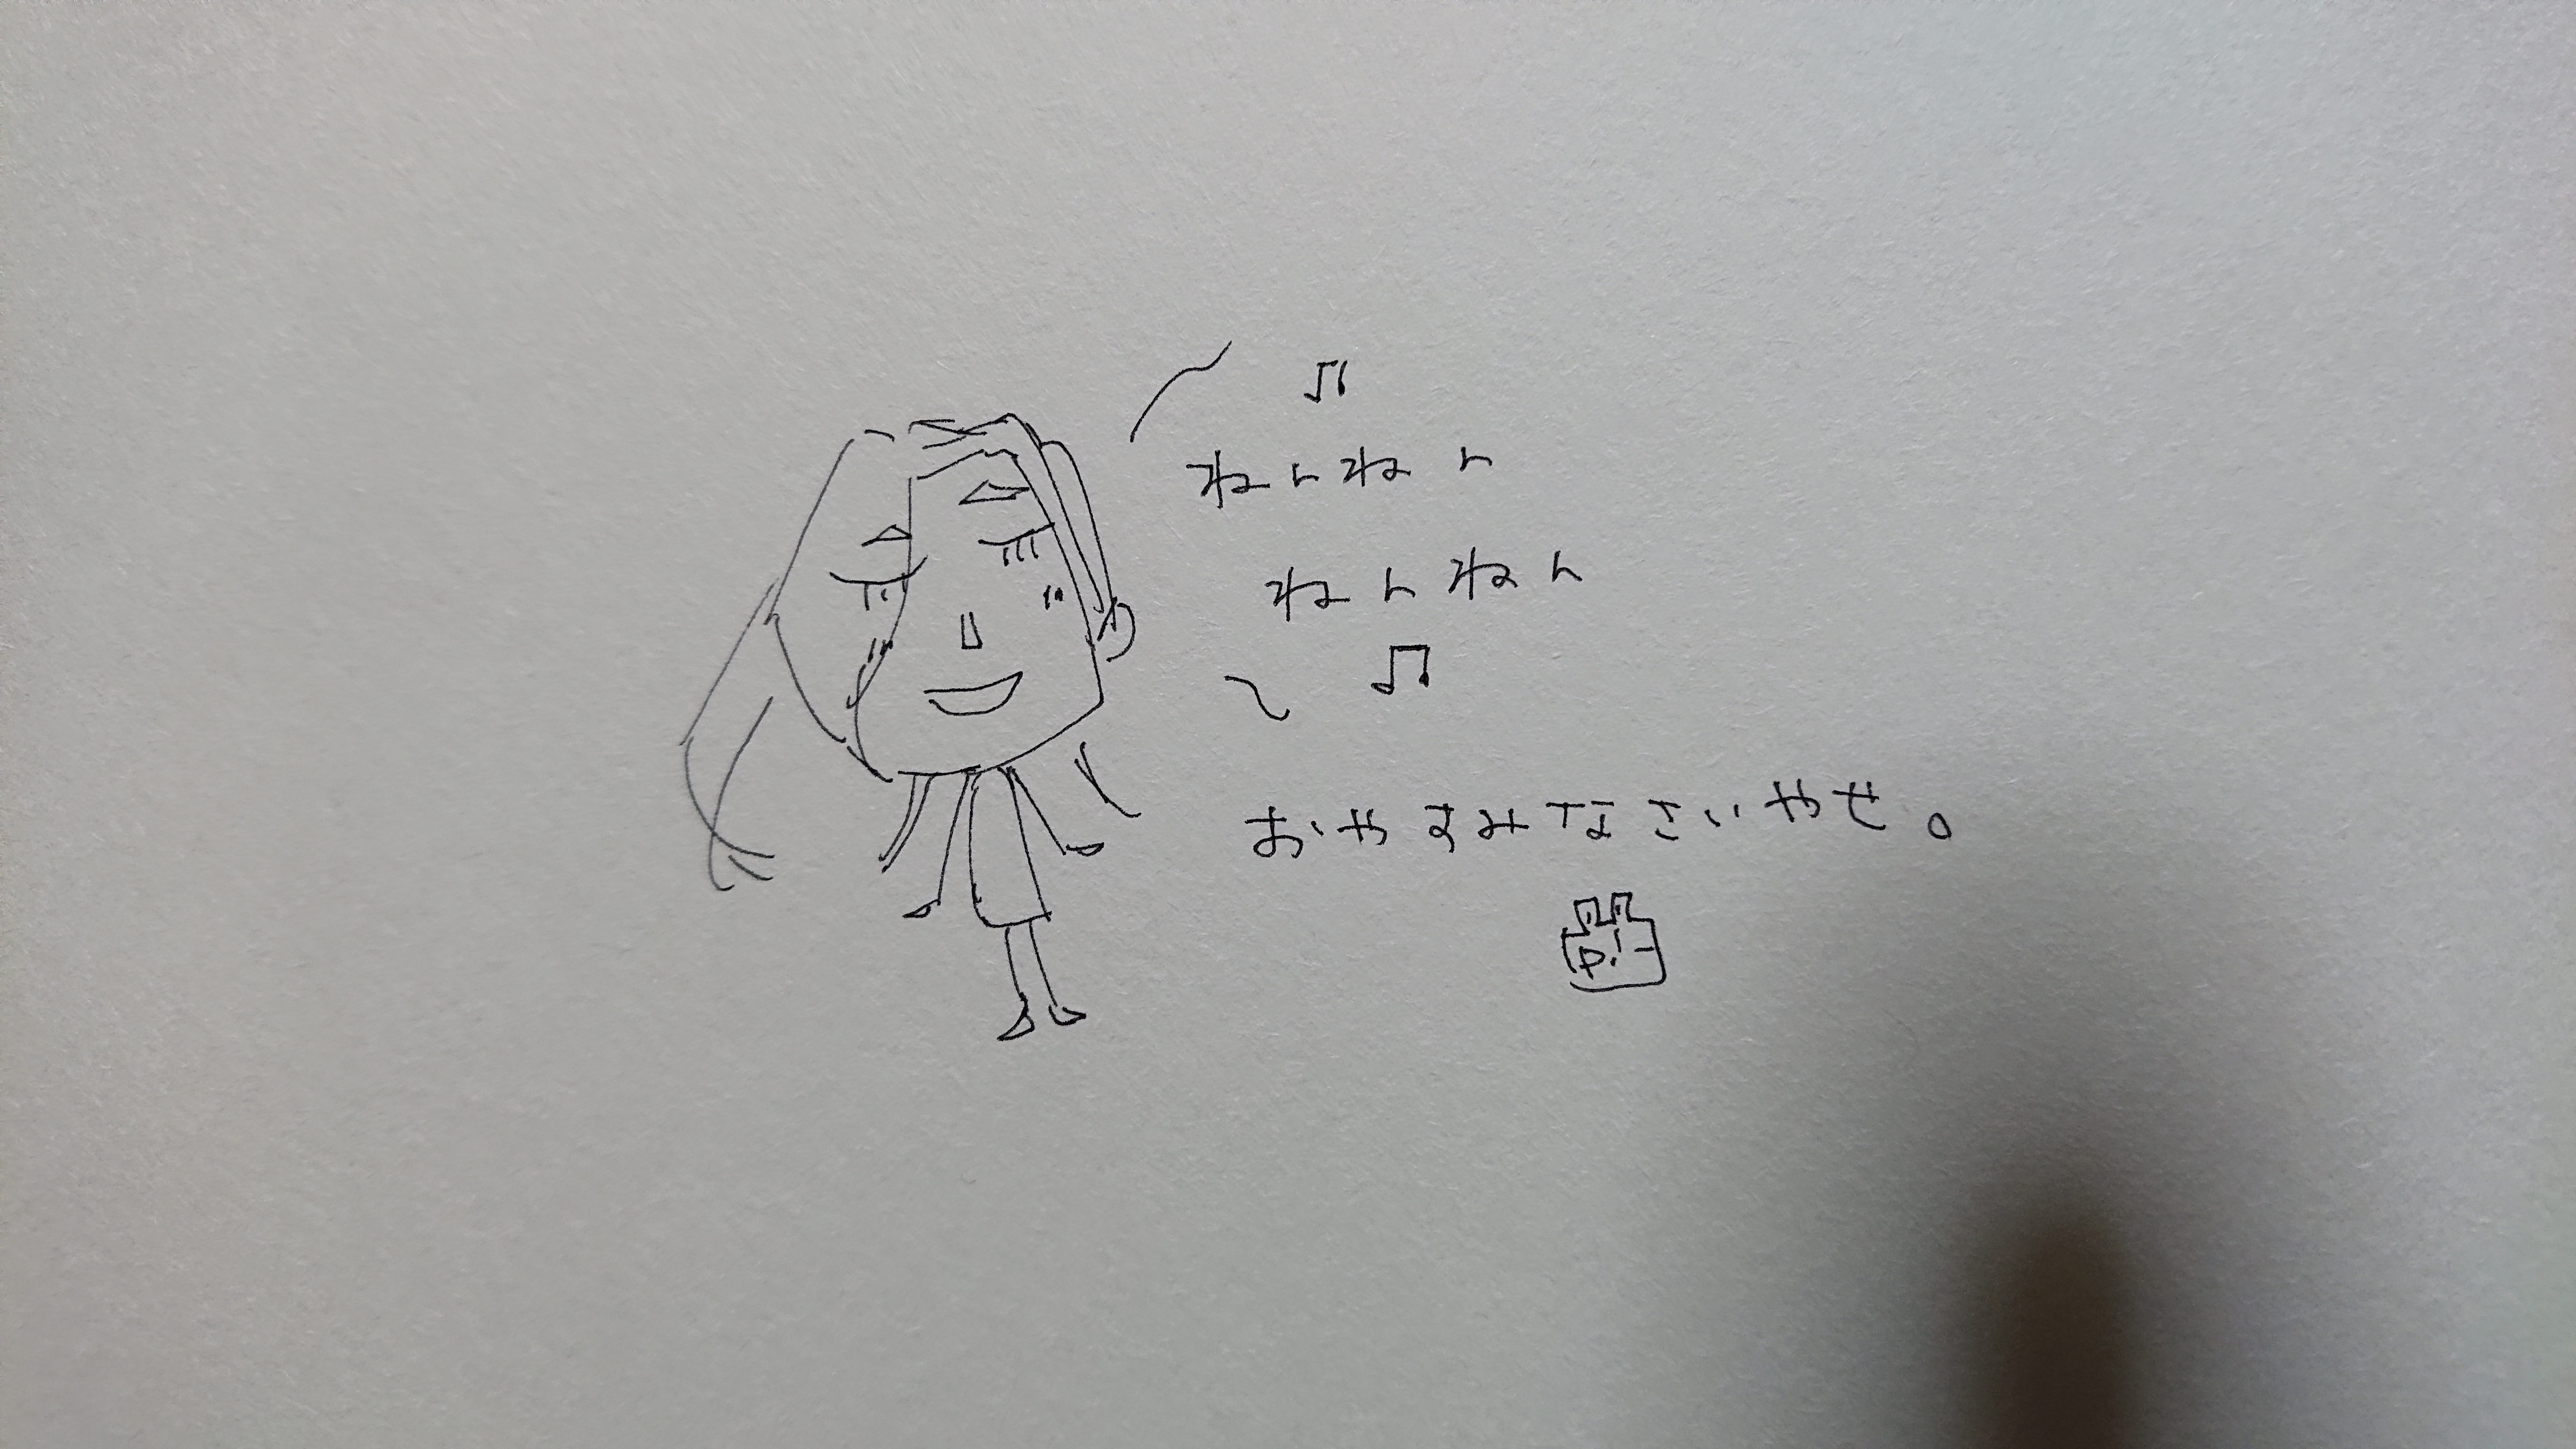 ♫
ねんねん
ねんねん
♫
おやすみなさいやせ。
P.